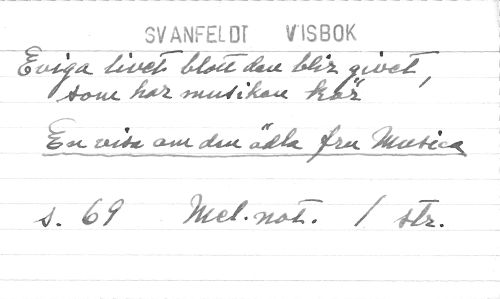 SVANFELDT VISBOK
Eviga livet blott den blir givet,
som har musiken kär
En visa om den ädla fru Musica
s. 69 Mel.not. 1 str.